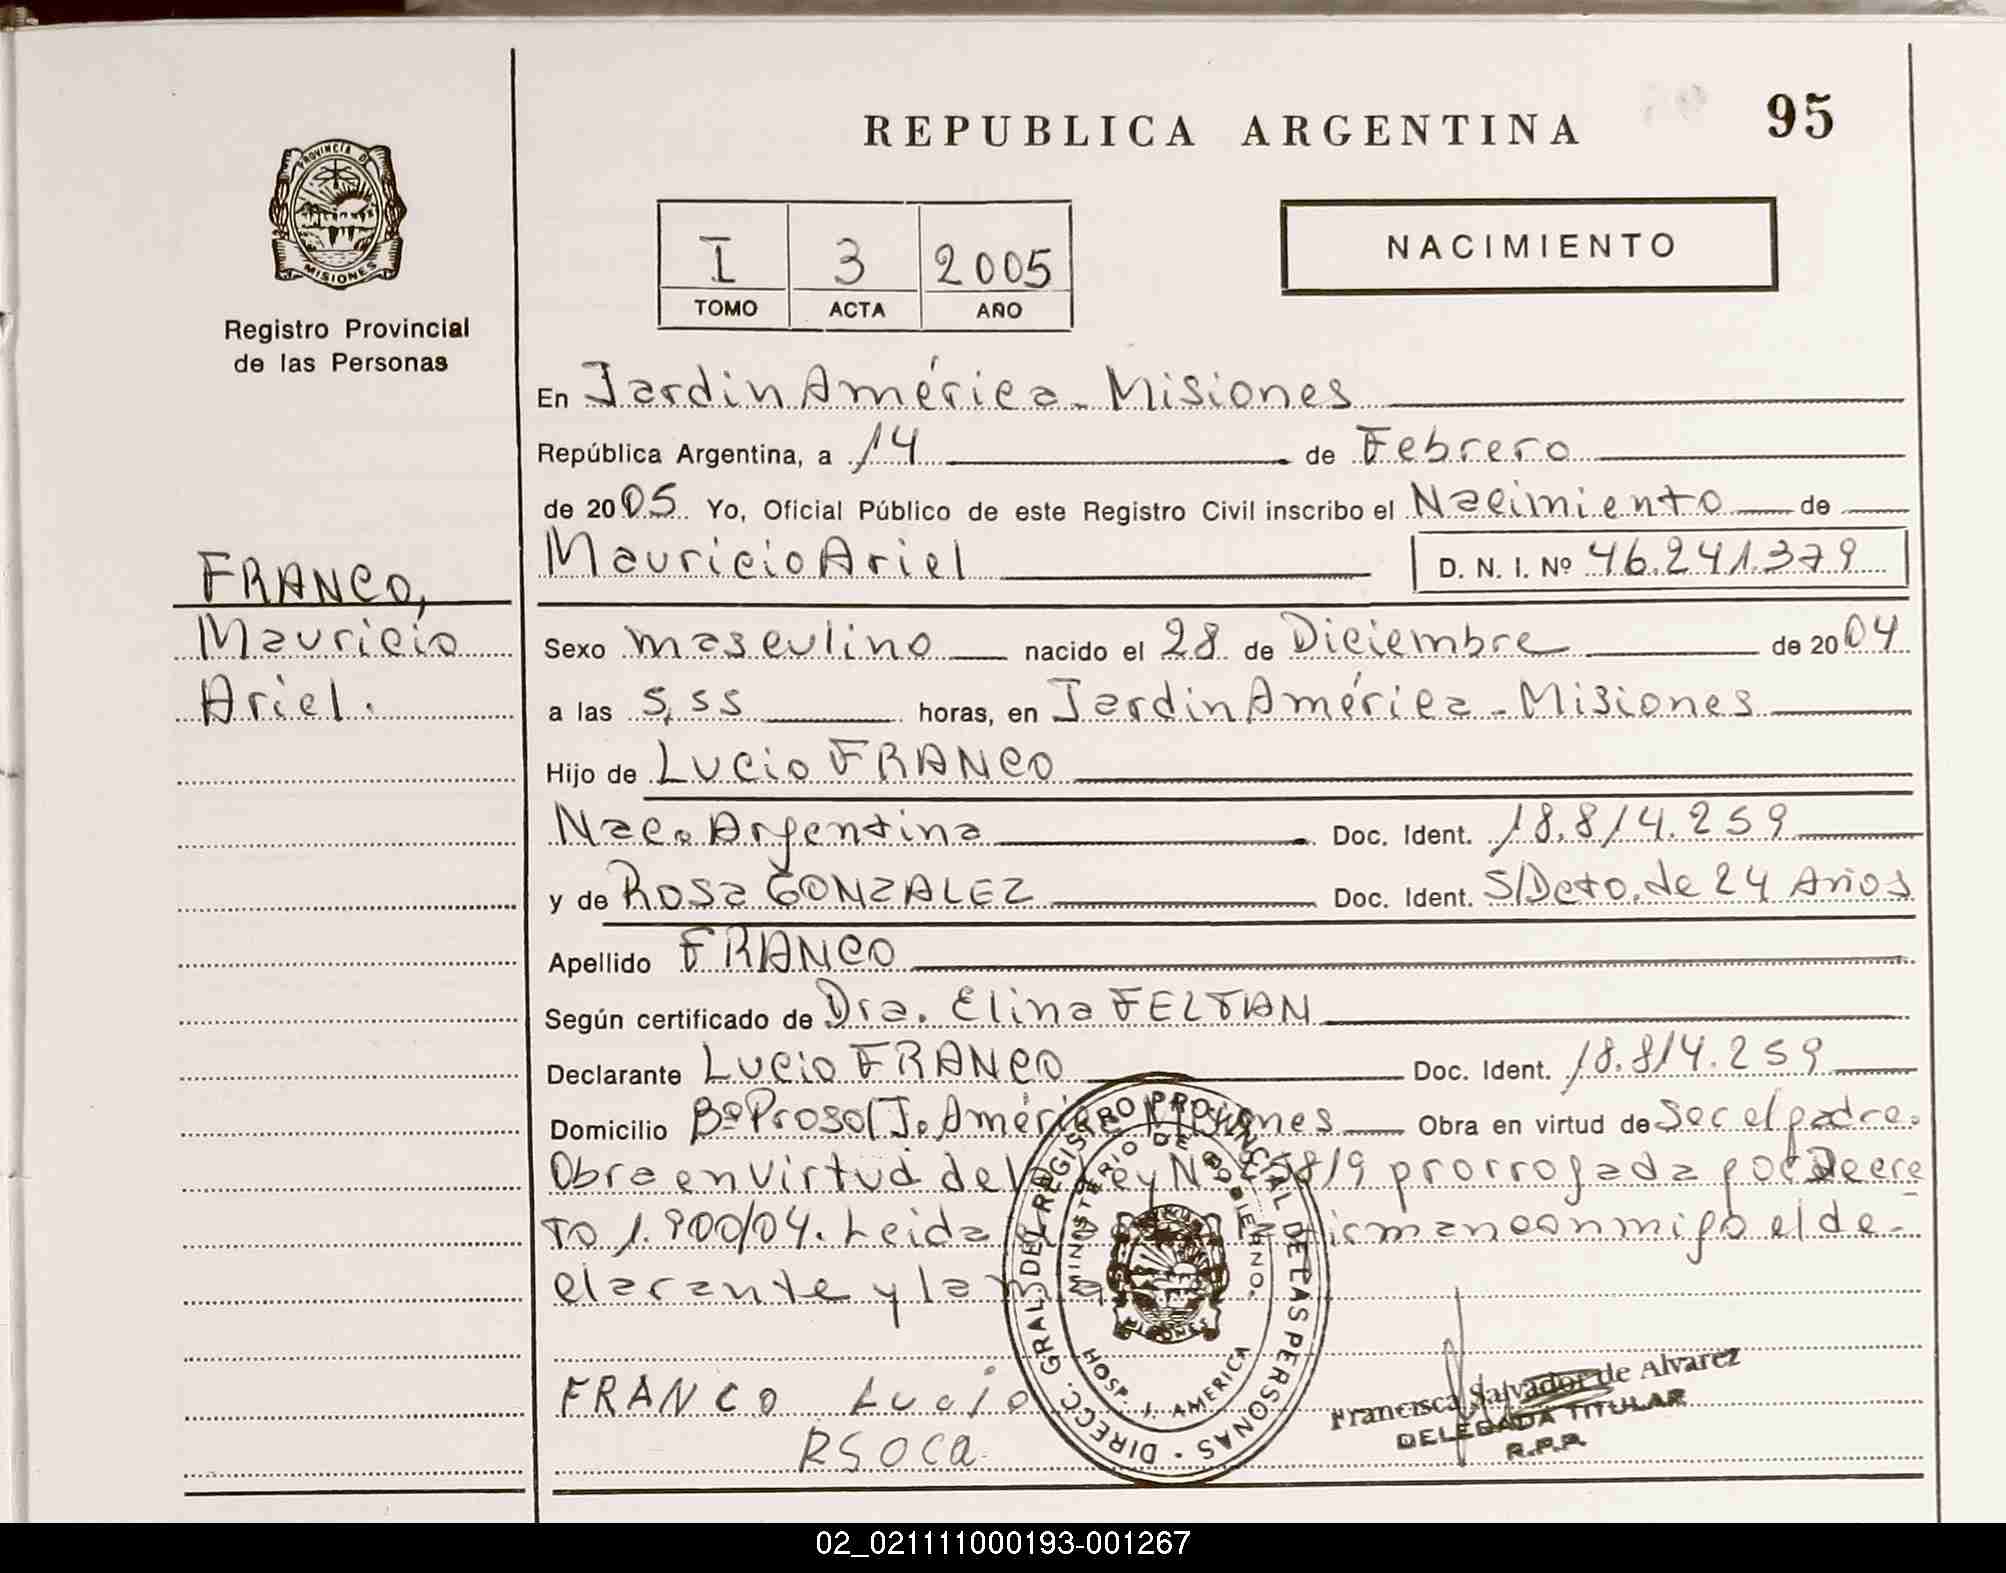 REPUBLICA ARGENTINA 95
PROVINCIA DE
MISIONES
Registro Provincial
de las Personas
I 3 2005
TOMO ACTA AÑO
NACIMIENTO
En Jardin América - Misiones
República Argentina, a 14 de Febrero
de 2005 Yo, Oficial Público de este Registro Civil inscribo el Nacimiento de
Mauricio Ariel D. N. I. Nº 46.241.379
FRANCO,
Mauricio
Ariel.
Sexo masculino nacido el 28 de Diciembre de 2004
a las 5,55 horas, en Jardin América - Misiones
Hijo de Lucio FRANCO
Nac. Argentina Doc. Ident. 18.814.259
y de Rosa GONZALEZ Doc. Ident. S/Dcto. de 24 Años
Apellido FRANCO
Según certificado de Dra. Elina FELTAN
Declarante Lucio FRANCO Doc. Ident. 18.814.259
Domicilio Bº Prosol J. América Misiones Obra en virtud de Ser el padre.
Obra en virtud de la Ley Nº 25819 prorrogada por Decre
to 1.900/04. Leida firman conmigo el de-
clarante y la
FRANCO Lucio
RSOCA
DIRECC. GRAL. DEL REGISTRO PROVINCIAL DE LAS PERSONAS
MINISTERIO DE GOBIERNO
MISIONES
HOSP. J. AMERICA
Francisca Salvador de Alvarez
DELEGADA TITULAR
R.P.P.
02_021111000193-001267